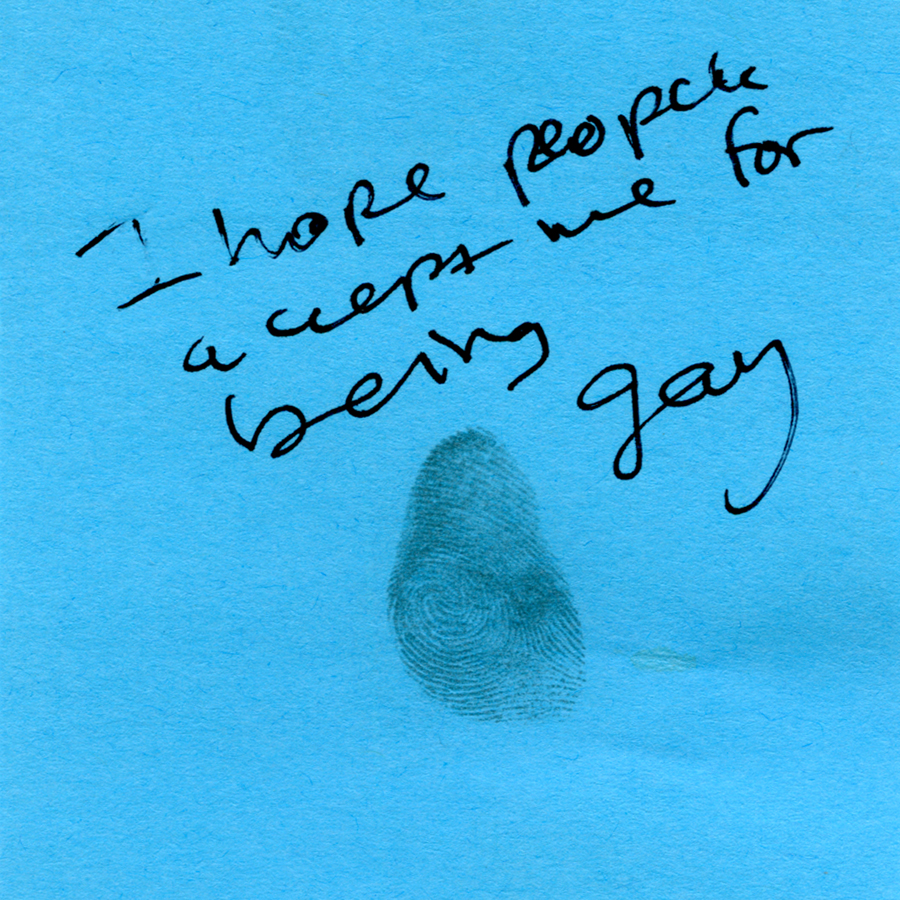 I hope people
accept me for
being gay